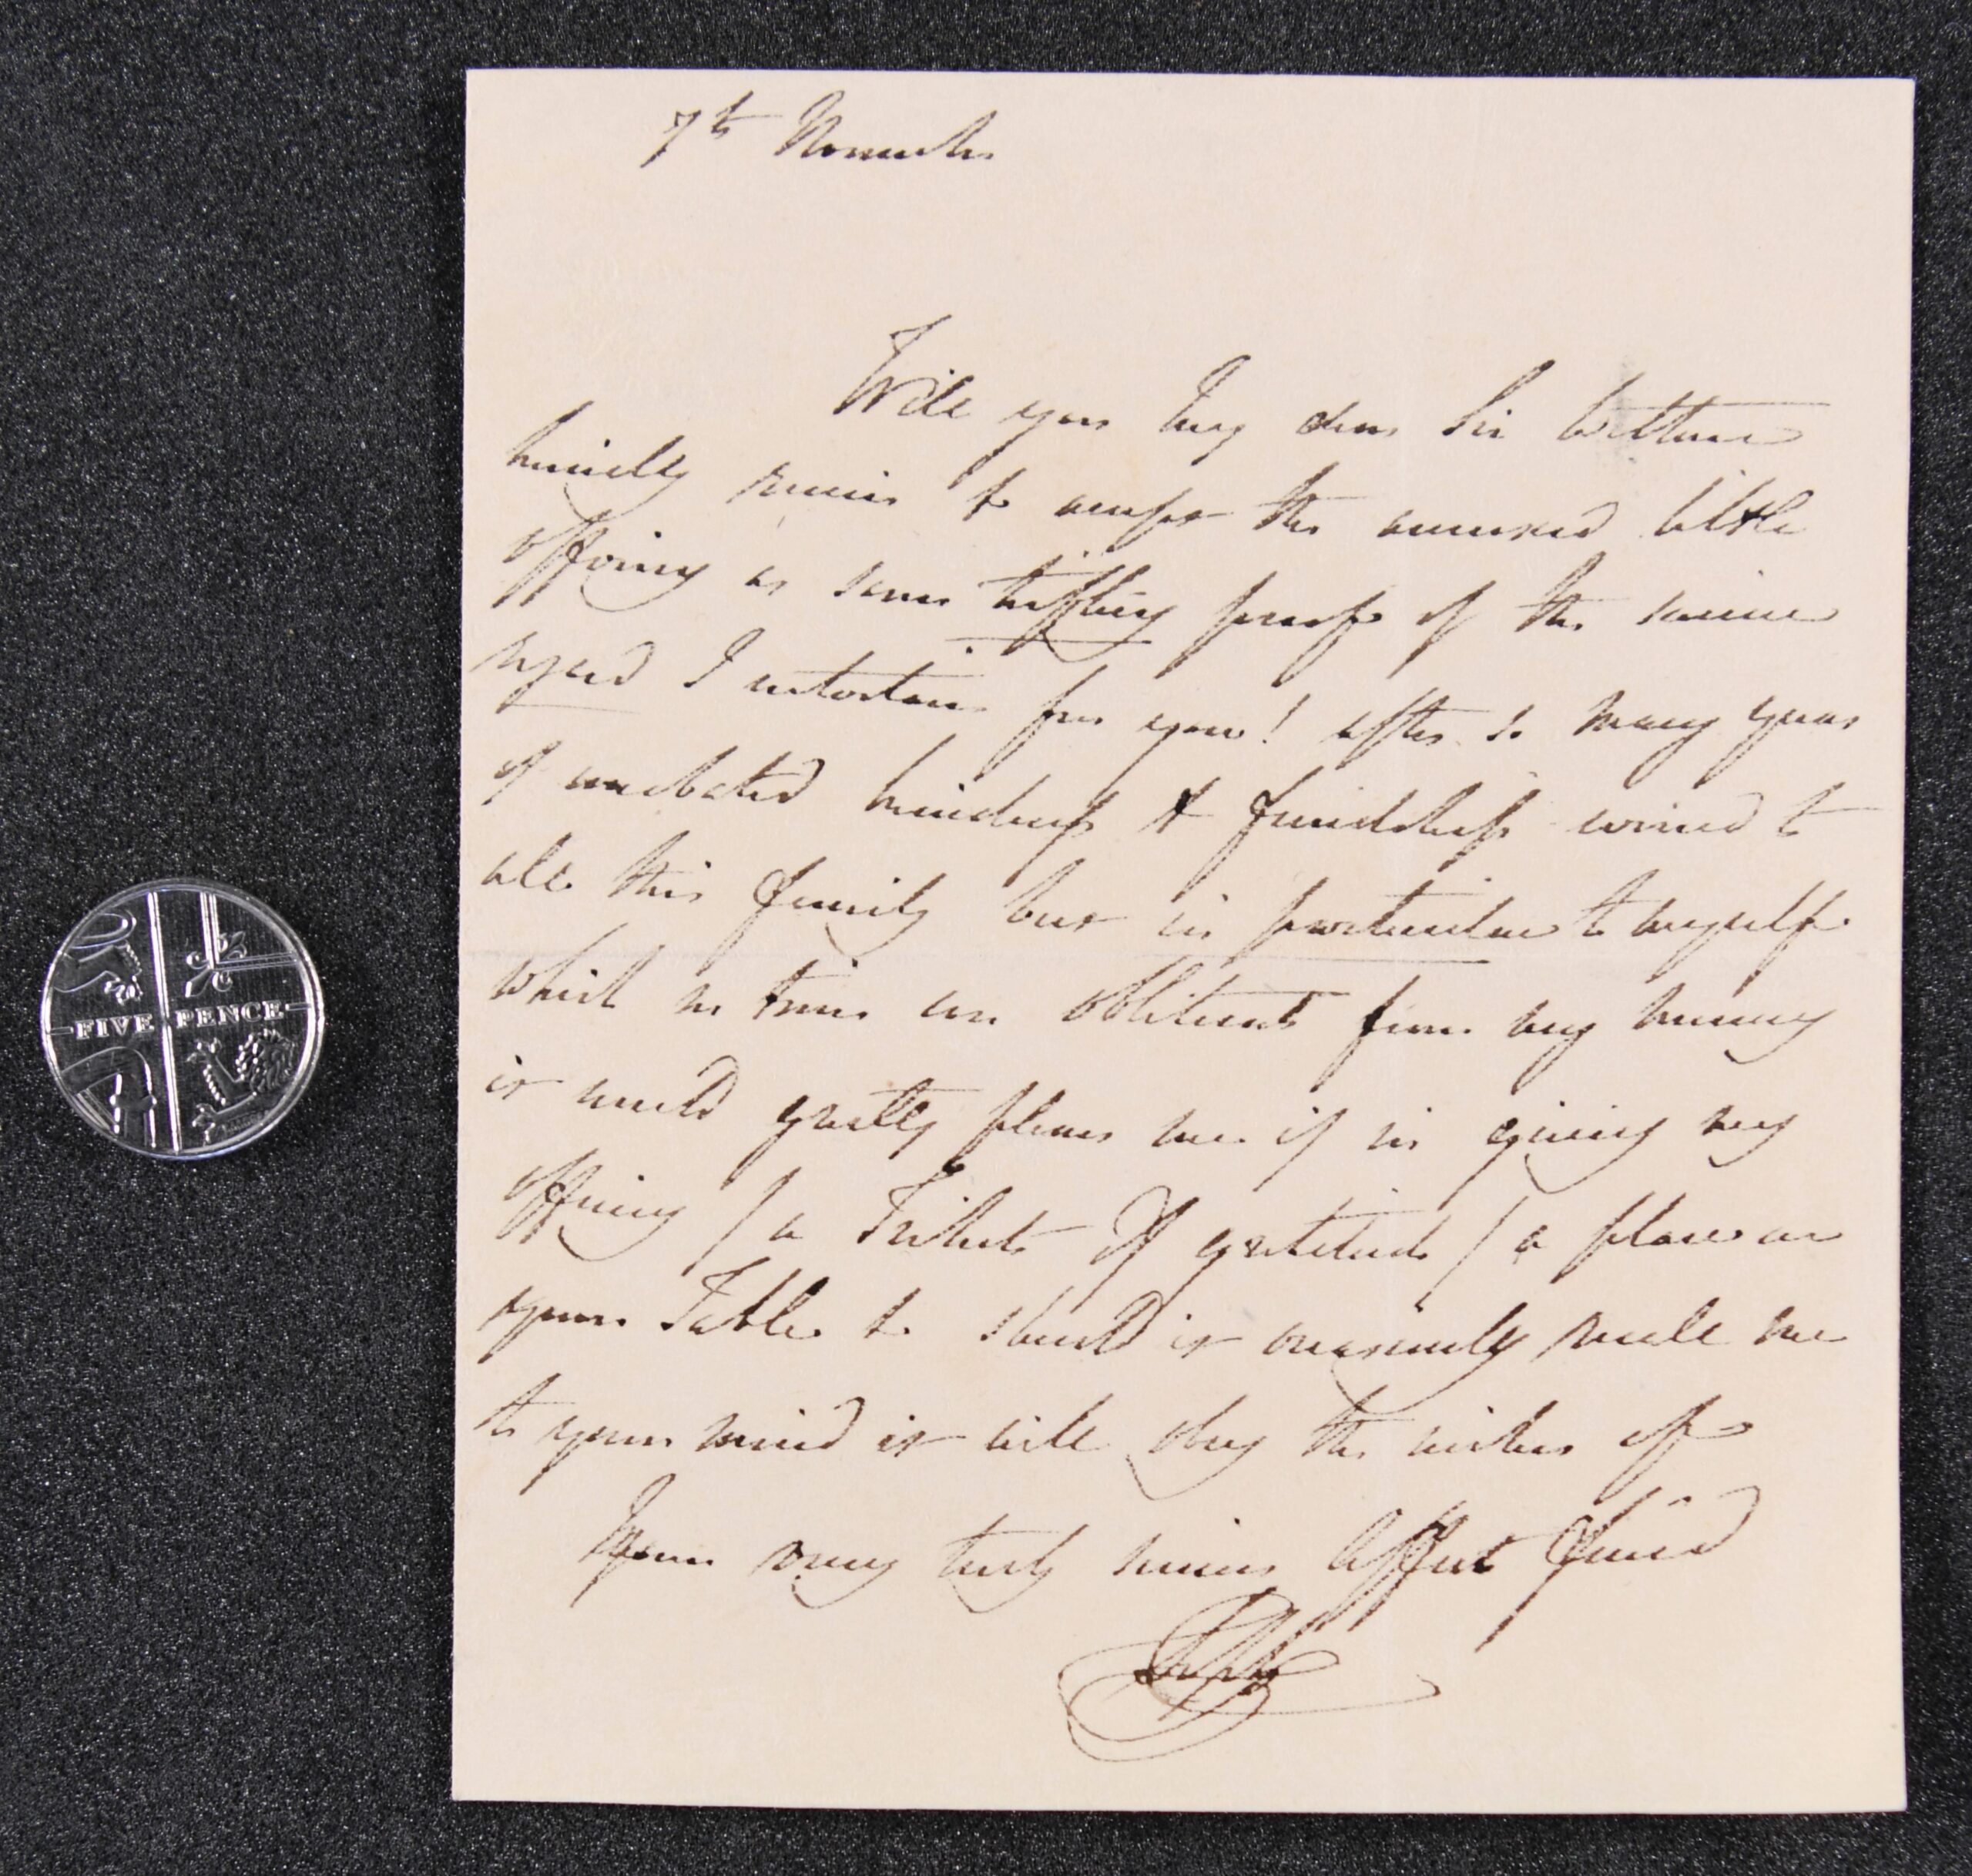 7th November
Will you my dear Sir William
kindly receive & accept the annexed little
offering as some trifling proof of the sincere
regard I entertain for you! after so many years
of unabated kindness & friendship evinced to
all this family but in particular to myself
which no time can obliterate from my memory
it would greatly please me if in giving my
offering / a Tribute Of gratitude / a place on
your Table & should it occasionally recall me
to your mind it will obey the wishes of
Your very truly sincere Affect Friend
FIVE PENCE